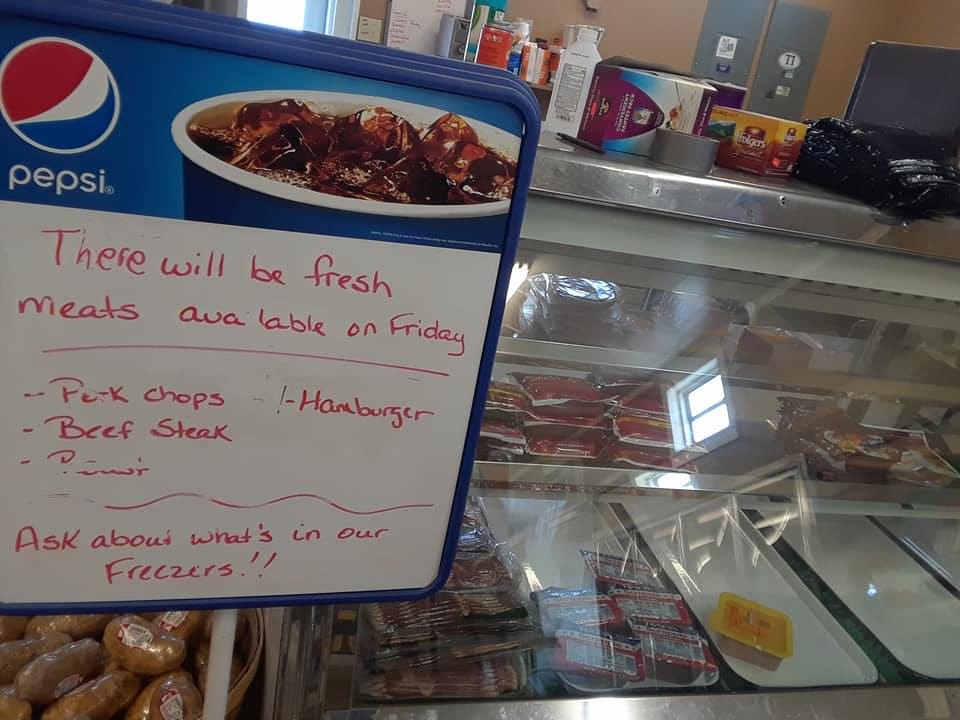 pepsi®
There will be fresh
meats available on Friday
- Pork chops
- Hamburger
- Beef Steak
-
Ask about what's in our
Freezers!!
Folgers